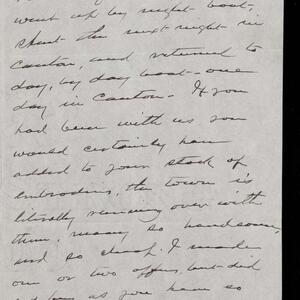 went up by night boat -
spent the next night in
Canton, and returned to
day, by day boat - one
day in Canton. If you
had been with us you
would certainly have
added to your stock of
embroideries, the town is
literally running over with
them, many so handsome,
and so cheap. I made
one or two offers, but did
as you have so